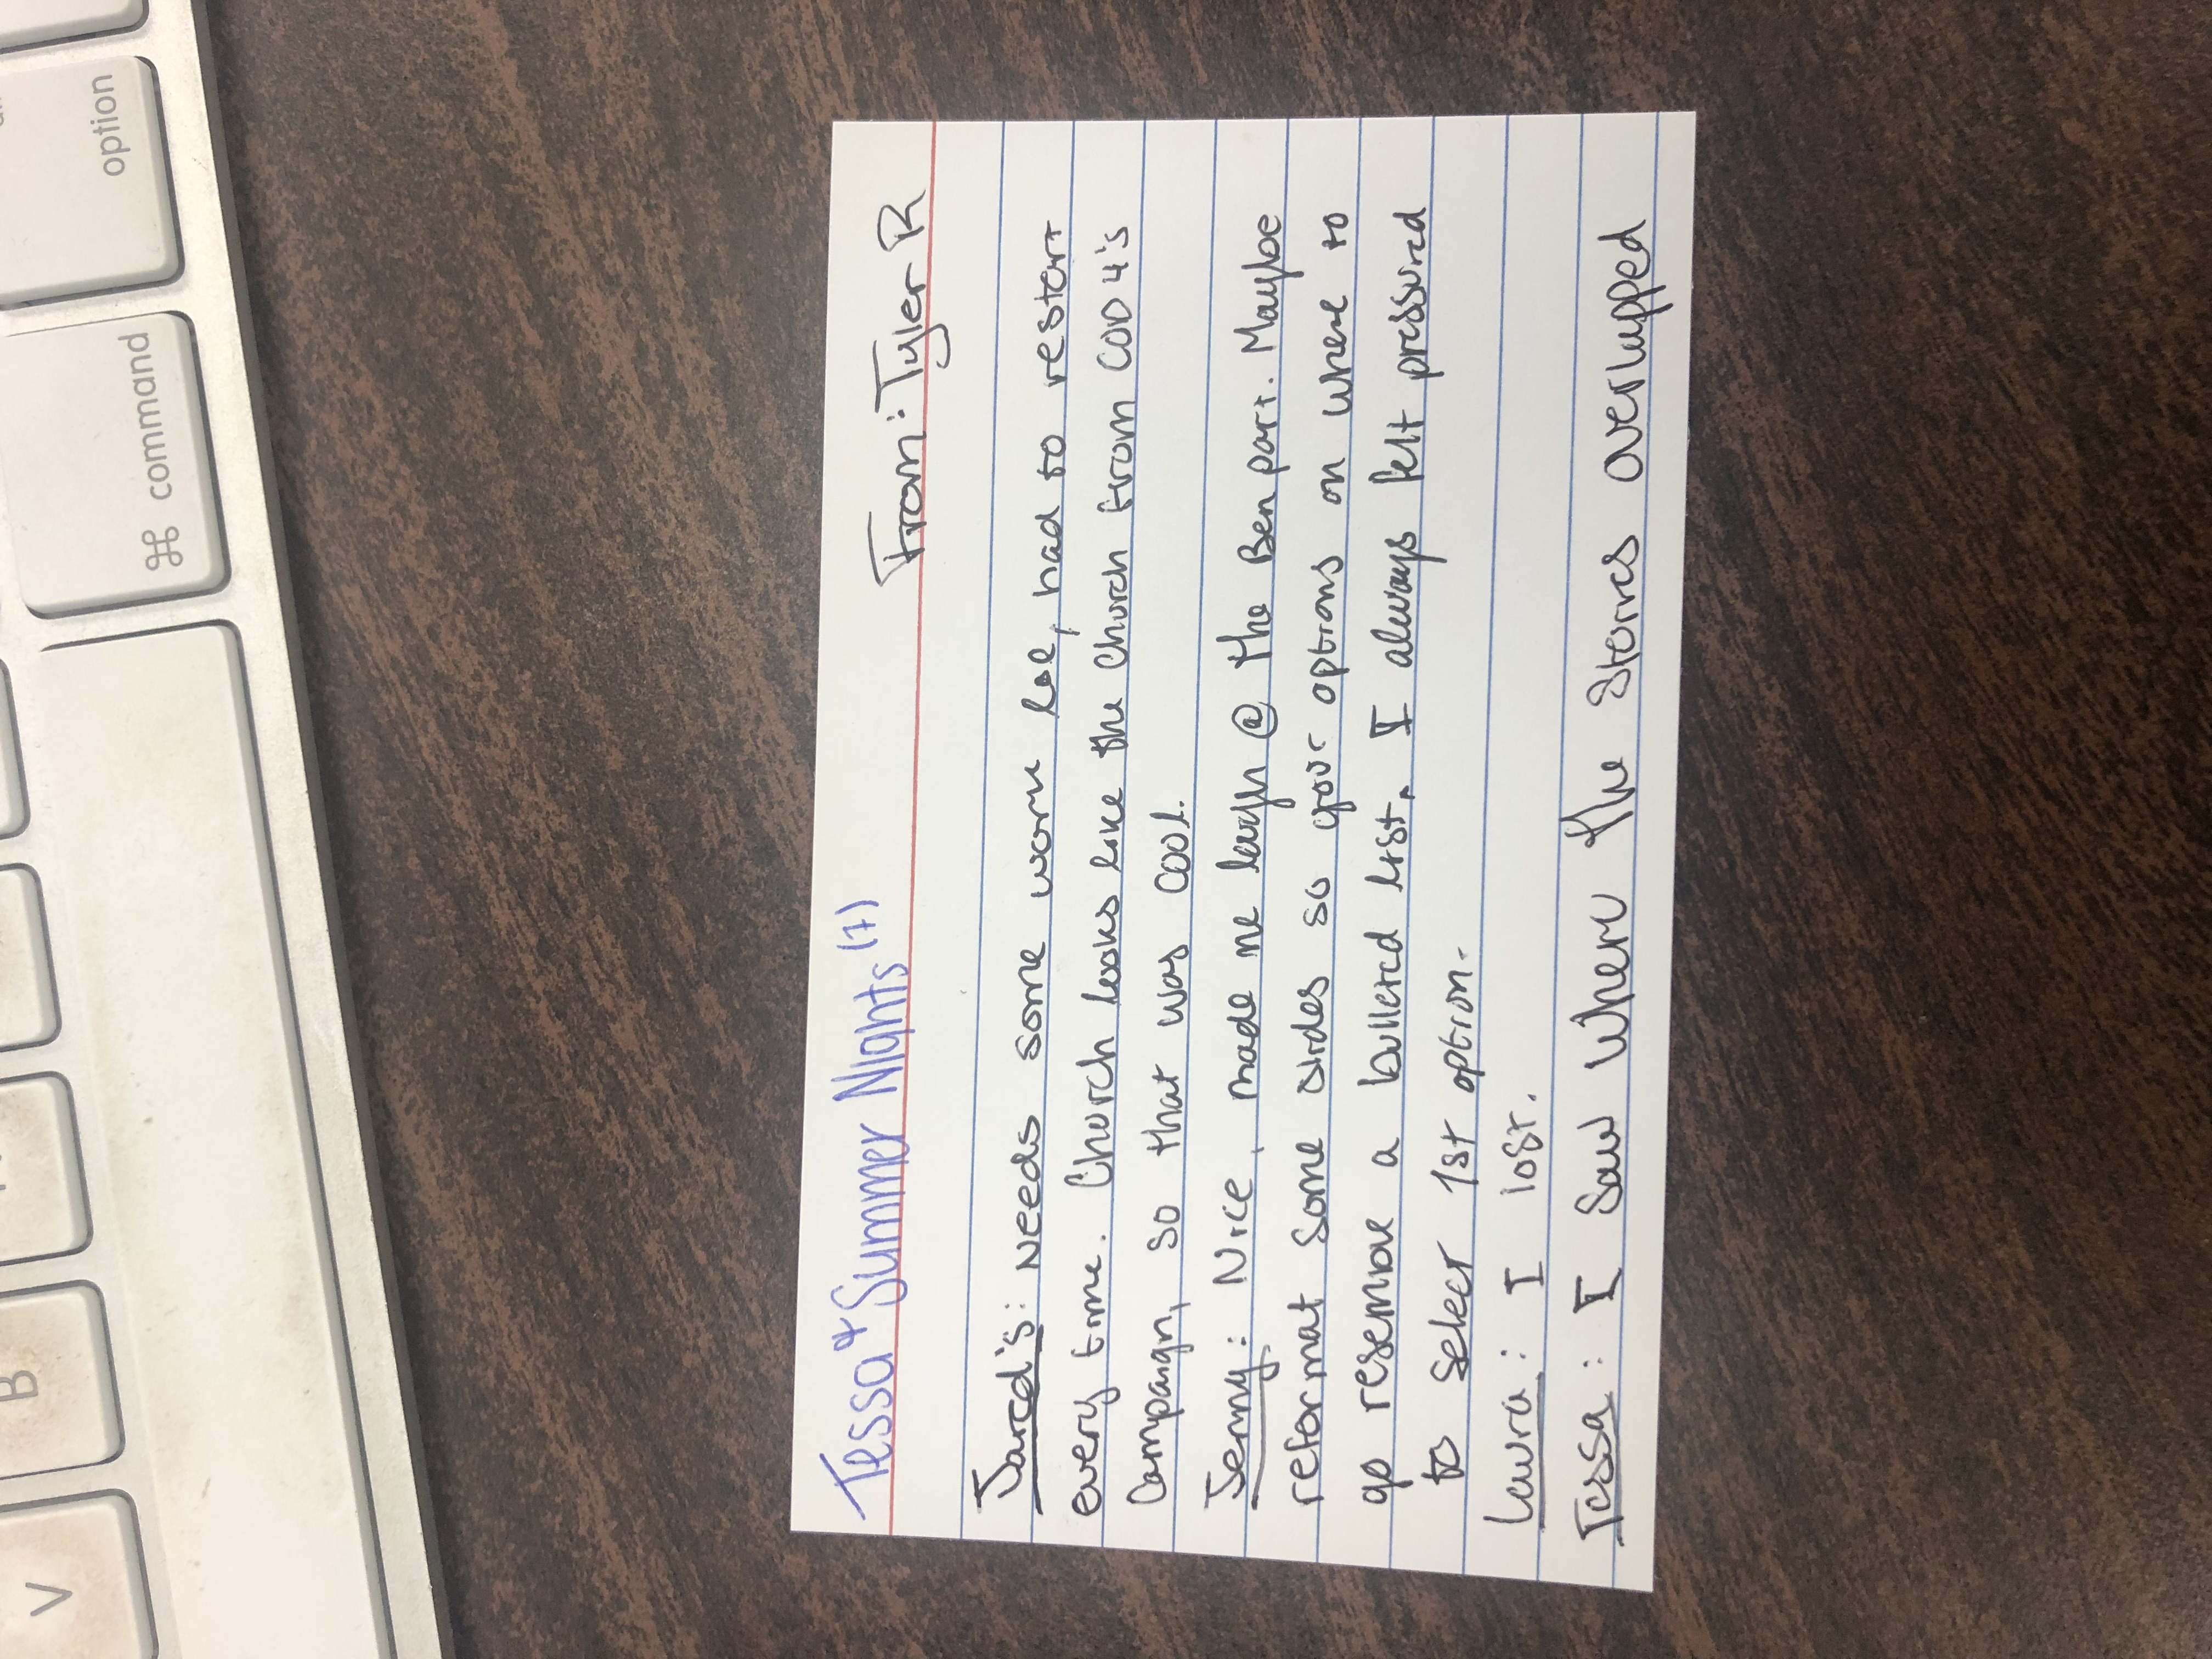 V B
⌘ command option
Tessa & Summer Nights (7)
From: Tyler R
Jared's: Needs some work lol, had to restart
every time. Church looks like the Church from COD 4's
Campaign, so that was cool.
Jenny: Nice, made me laugh @ the Ben part. Maybe
reformat some slides so your options on where to
go resemble a bulleted list. I always felt pressured
to select 1st option.
Laura: I lost.
Tessa: I saw where the stories overlapped